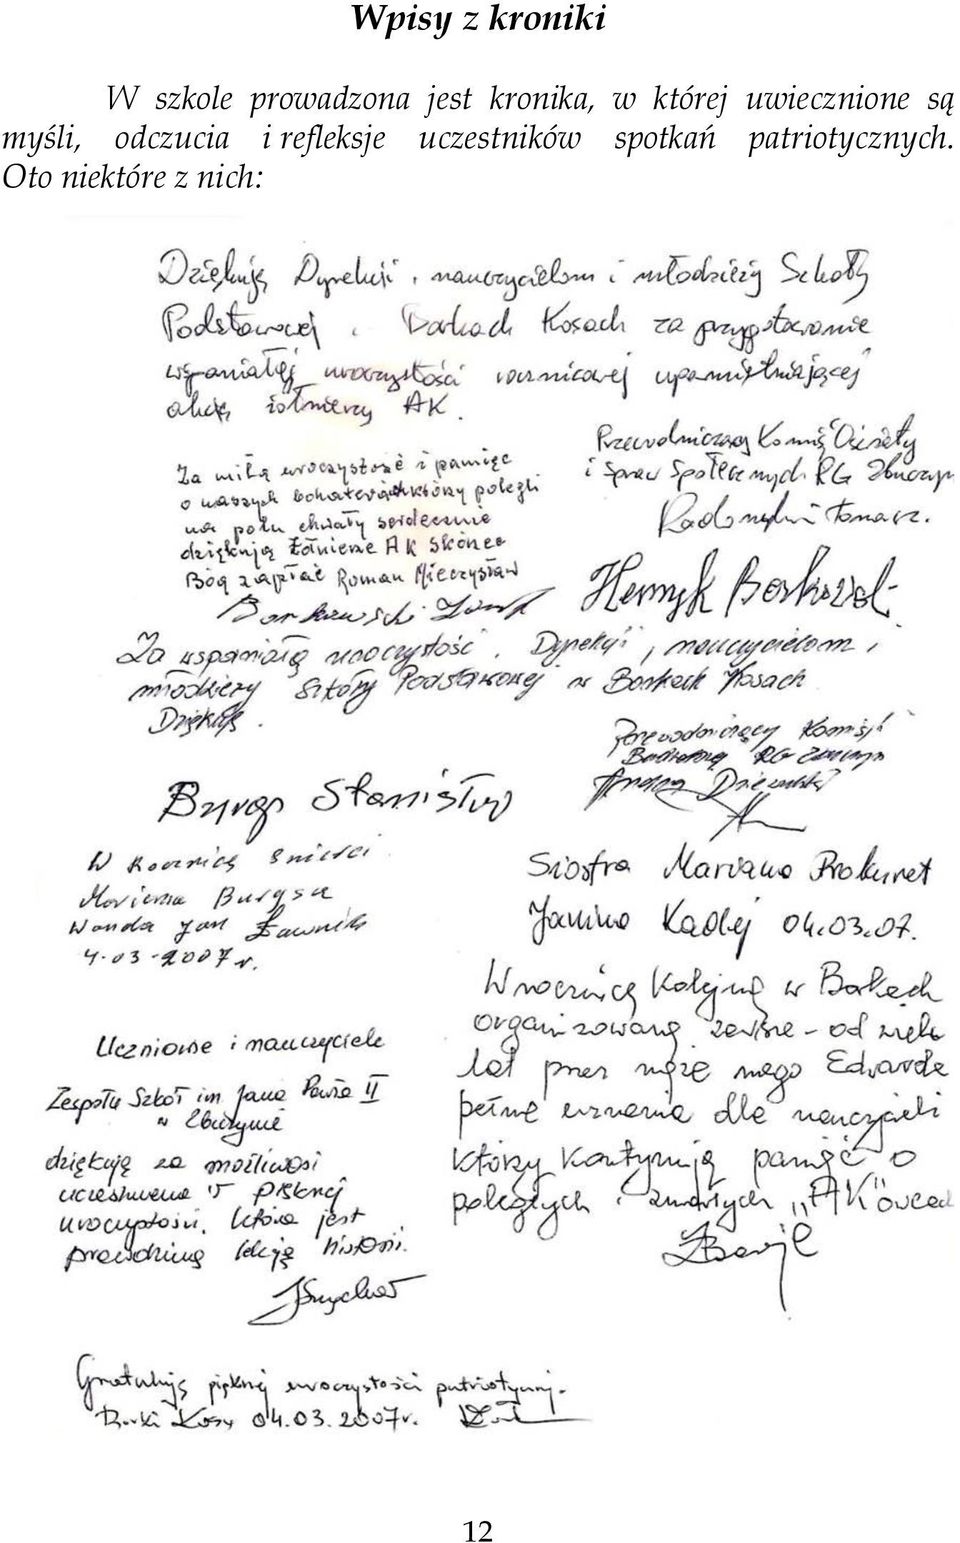 Wpisy z kroniki
W szkole prowadzona jest kronika, w której uwiecznione są
myśli, odczucia i refleksje uczestników spotkań patriotycznych.
Oto niektóre z nich:
Dziękuję Dyrekcji, nauczycielom i młodzieży Szkoły
Podstawowej w Borkach Kosach za przygotowanie
wspaniałej uroczystości rocznicowej upamiętniającej
akcję żołnierzy AK.
Przewodniczący Komisji Oświaty
i Spraw Społecznych RG Zbuczyn
Radomyski Tomasz.
Za miłą uroczystość i pamięc
o naszych bohaterach którzy polegli
na polu chwały serdecznie
dziękują Żołnierze AK
Bóg zapłać Roman Mieczysław
Borkowski Józef
Henryk Borkowski
Za wspaniałą uroczystość, Dyrekcji, nauczycielom i
młodzieży Szkoły Podstawowej w Borkach Kosach
Dziękuję.
Przewodniczący Komisji
RG Zbuczyn
Andrzej
Stanisław
W Rocznicę Śmierci
Mariana Burgsa
Wanda Jan Ławnik
4-03-2007r.
Siostra Mariana Prokurat
Janina Kadej 04.03.07.
W rocznicę Kolejną w Borkach
organizowaną zawsze - od wielu
lat przez męża mego Edwarda
pełne uznania dla nauczycieli
którzy kontynują pamięć o
poległych i zmarłych "AK"owcach
Uczniowie i nauczyciele
Zespołu Szkół im Jana Pawła II
w Zbuczynie
dziękują za możliwosi
uczestnictwa w pięknej
uroczystości, która jest
prawdziwą lekcją historii.
Gratuluję pięknej uroczystości patriotycznej.
Borki Kosy 04.03.2007r.
12